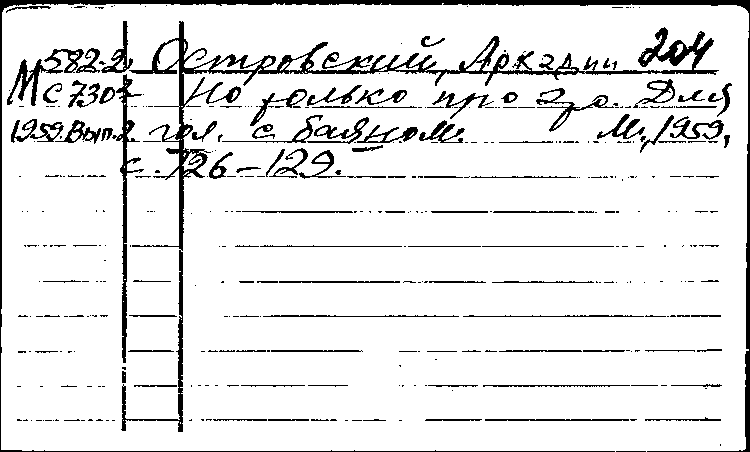 582-2 Островский, Аркадий 204
М С 7307 Но только про это. Для
1959. Вып. 2. гол. с баяном. М., 1959,
с. 126-129.